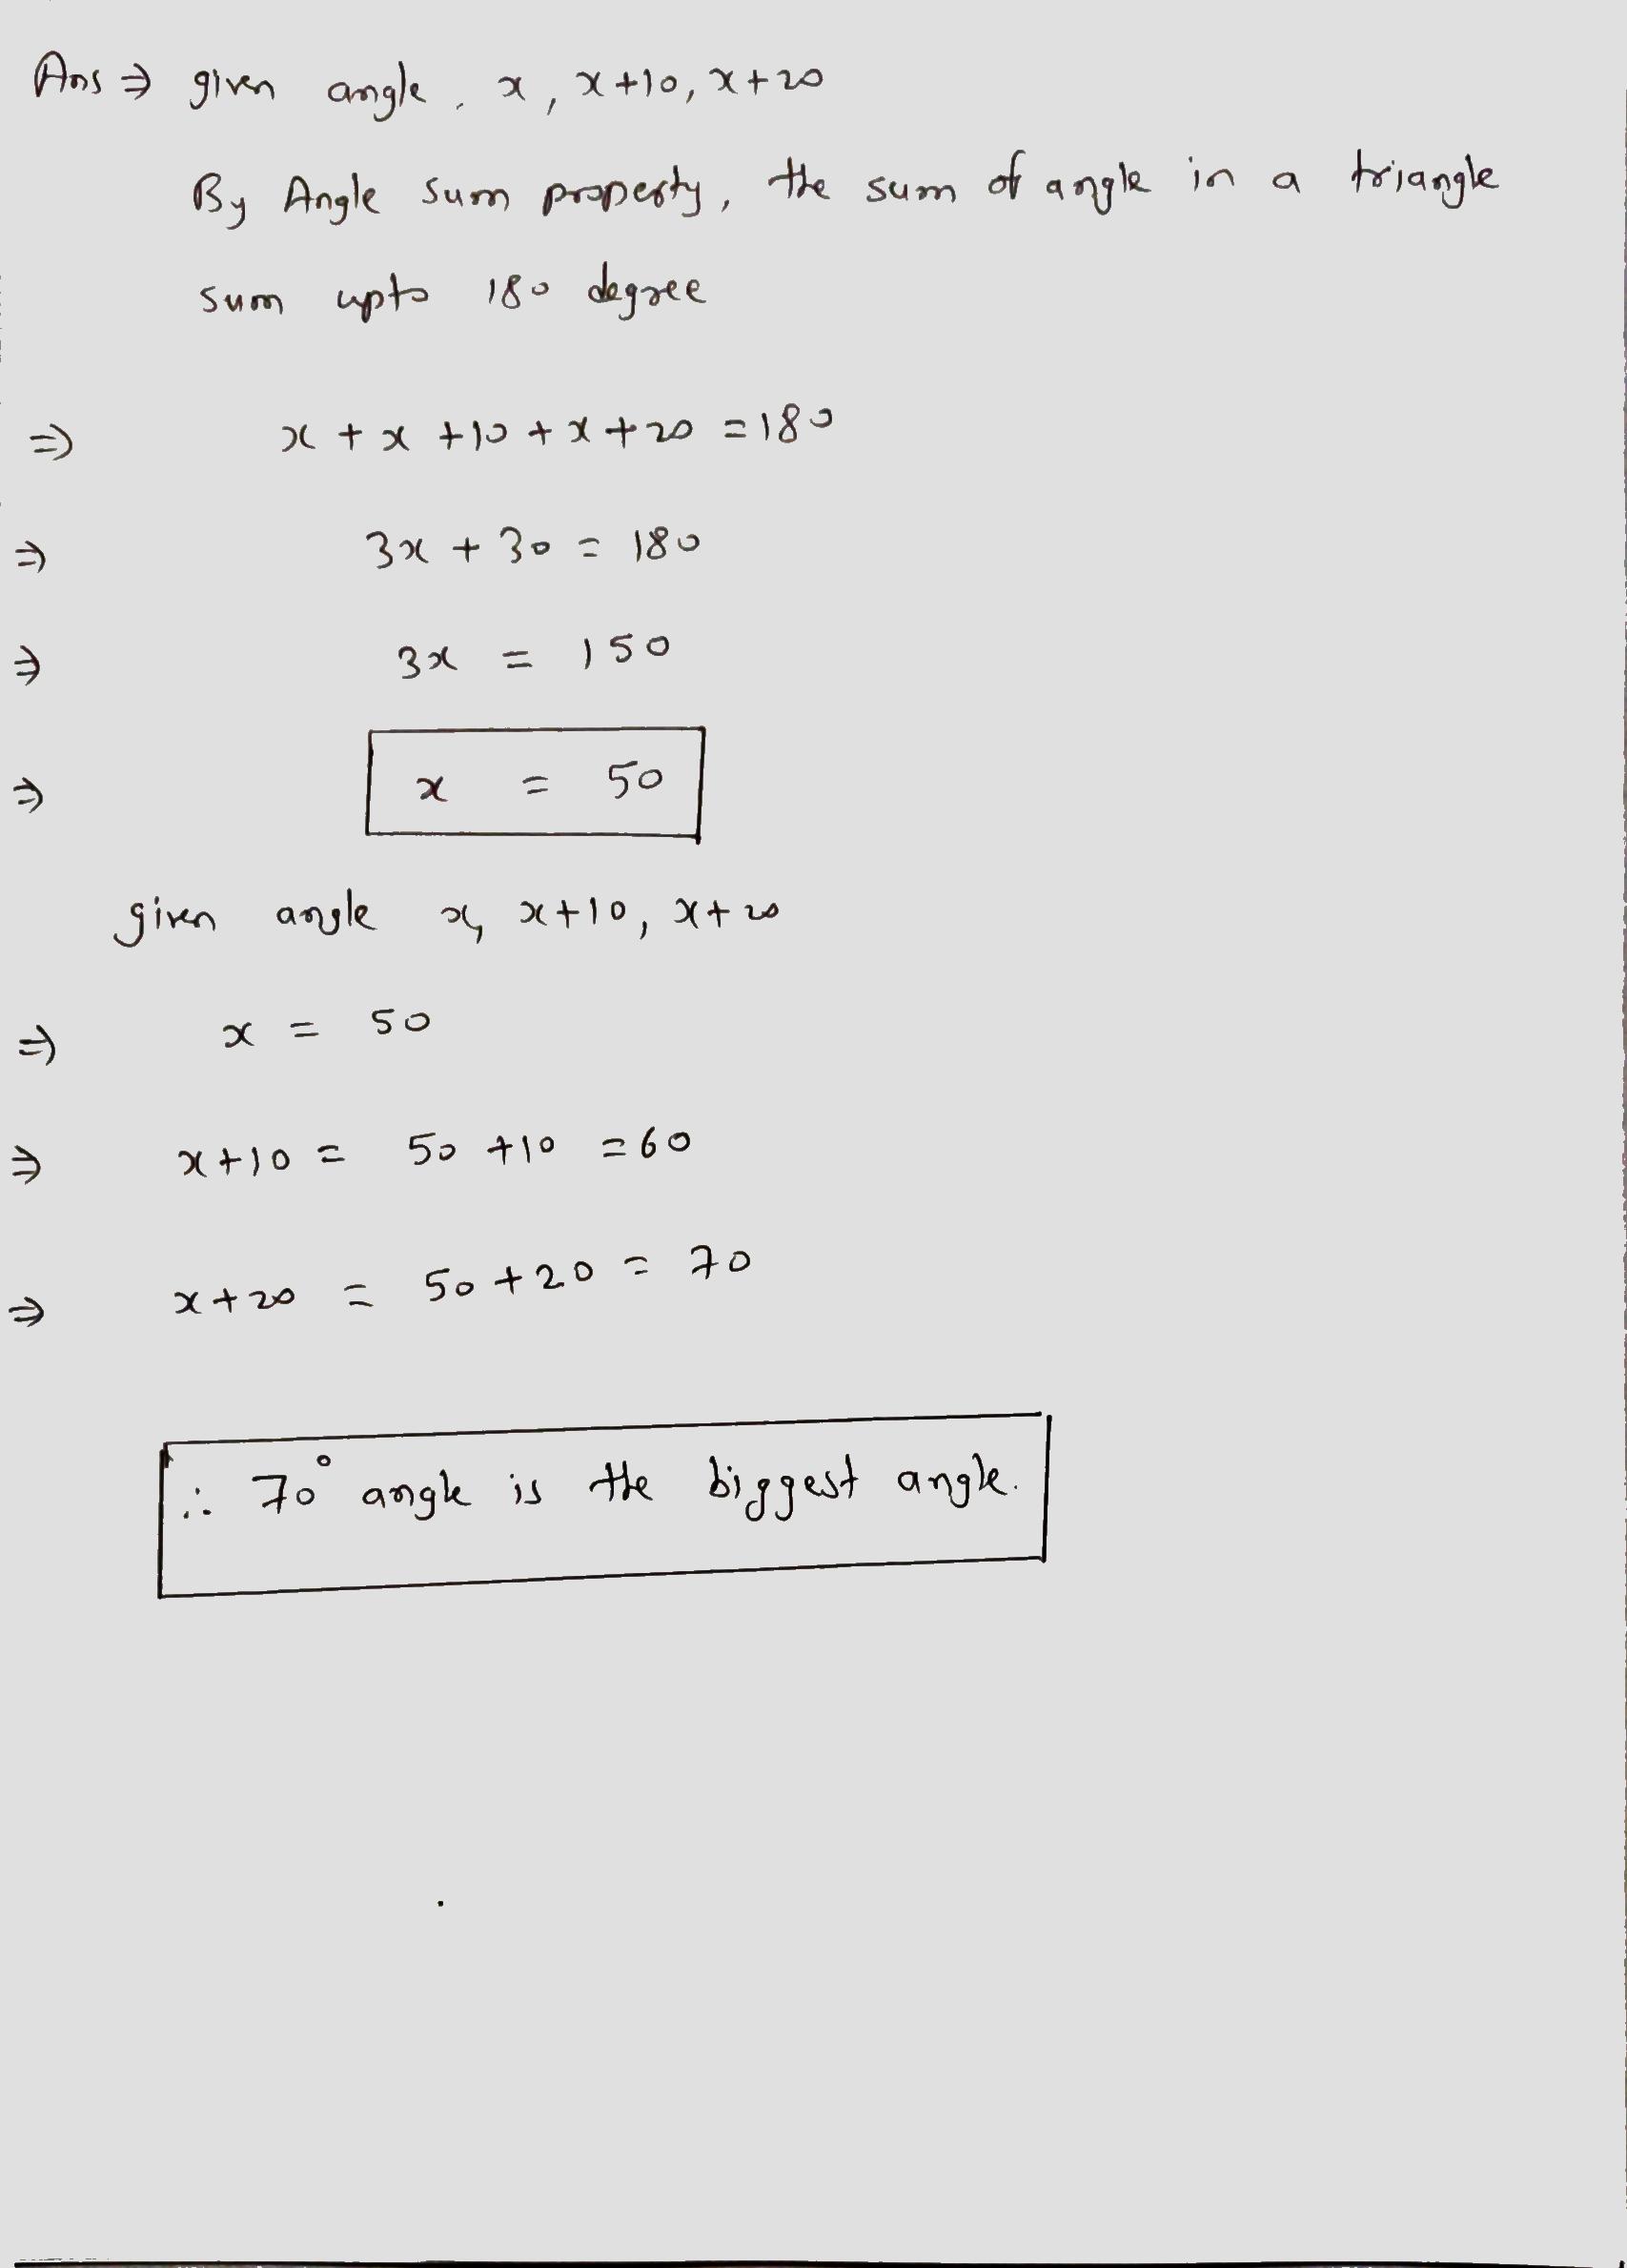 Ans ⇒ given angle. x, x+10, x+20
By Angle sum property, the sum of angle in a triangle
sum upto 180 degree
⇒ x + x +10 + x + 20 = 180
⇒ 3x + 30 = 180
⇒ 3x = 150
⇒ x = 50
given angle x, x+10, x+20
⇒ x = 50
⇒ x+10 = 50 +10 = 60
⇒ x+20 = 50+20 = 70
∴ 70° angle is the biggest angle.